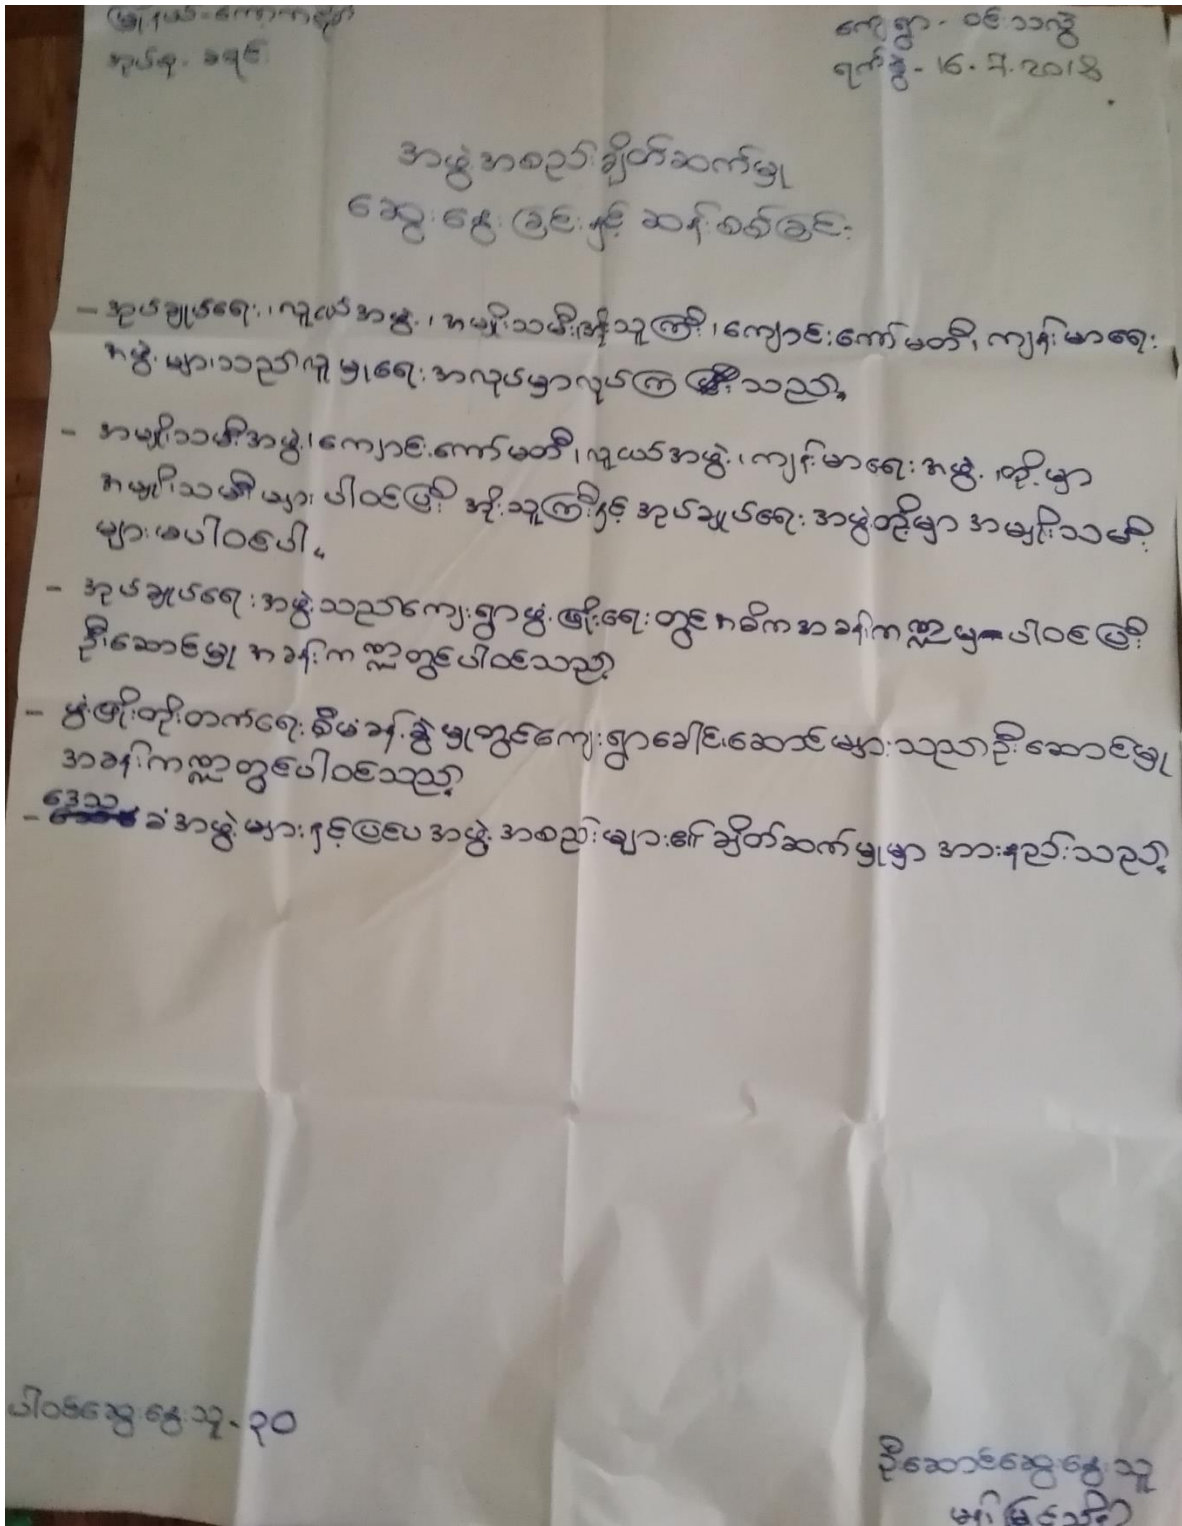 မြို့နယ် - ကော့ကရိတ်
အုပ်စု - ခရင်း
ကျေးရွာ - ဝင်းသလွဲ
ရက်စွဲ - 16.7.2018
အဖွဲ့အစည်းချိတ်ဆက်မှု
ဆွေးနွေးခြင်းနှင့် ဆန်းစစ်ခြင်း
- အုပ်ချုပ်ရေး၊ လူငယ်အဖွဲ့၊ အမျိုးသမီး၊ အိုးသူကြီး၊ ကျောင်းကော်မတီ၊ ကျန်းမာရေး
အဖွဲ့များသည် လူမှုရေးအလုပ်မှာလုပ်ကြပြီးသည်။
- အမျိုးသမီးအဖွဲ့၊ ကျောင်းကော်မတီ၊ လူငယ်အဖွဲ့၊ ကျန်းမာရေးအဖွဲ့၊ တို့မှာ
အမျိုးသမီးများ ပါဝင်ပြီး အိုးသူကြီးနှင့် အုပ်ချုပ်ရေးအဖွဲ့တို့မှာ အမျိုးသမီး
များမပါဝင်ပါ။
- အုပ်ချုပ်ရေးအဖွဲ့သည်ကျေးရွာဖွံ့ဖြိုးရေးတွင်အဓိကအခန်းကဏ္ဍမှပါဝင်ပြီး
ဦးဆောင်မှုအခန်းကဏ္ဍတွင်ပါဝင်သည်။
- ဖွံ့ဖြိုးတိုးတက်ရေးစီမံခန့်ခွဲမှုတွင်ကျေးရွာခေါင်းဆောင်များသည်ဦးဆောင်မှု
အခန်းကဏ္ဍတွင်ပါဝင်သည်။
- ဒေသခံအဖွဲ့များနှင့်ပြင်ပအဖွဲ့အစည်းများ၏ ချိတ်ဆက်မှုမှာ အားနည်းသည်။
ပါဝင်ဆွေးနွေးသူ - ၃၀
ဦးဆောင်ဆွေးနွေးသူ